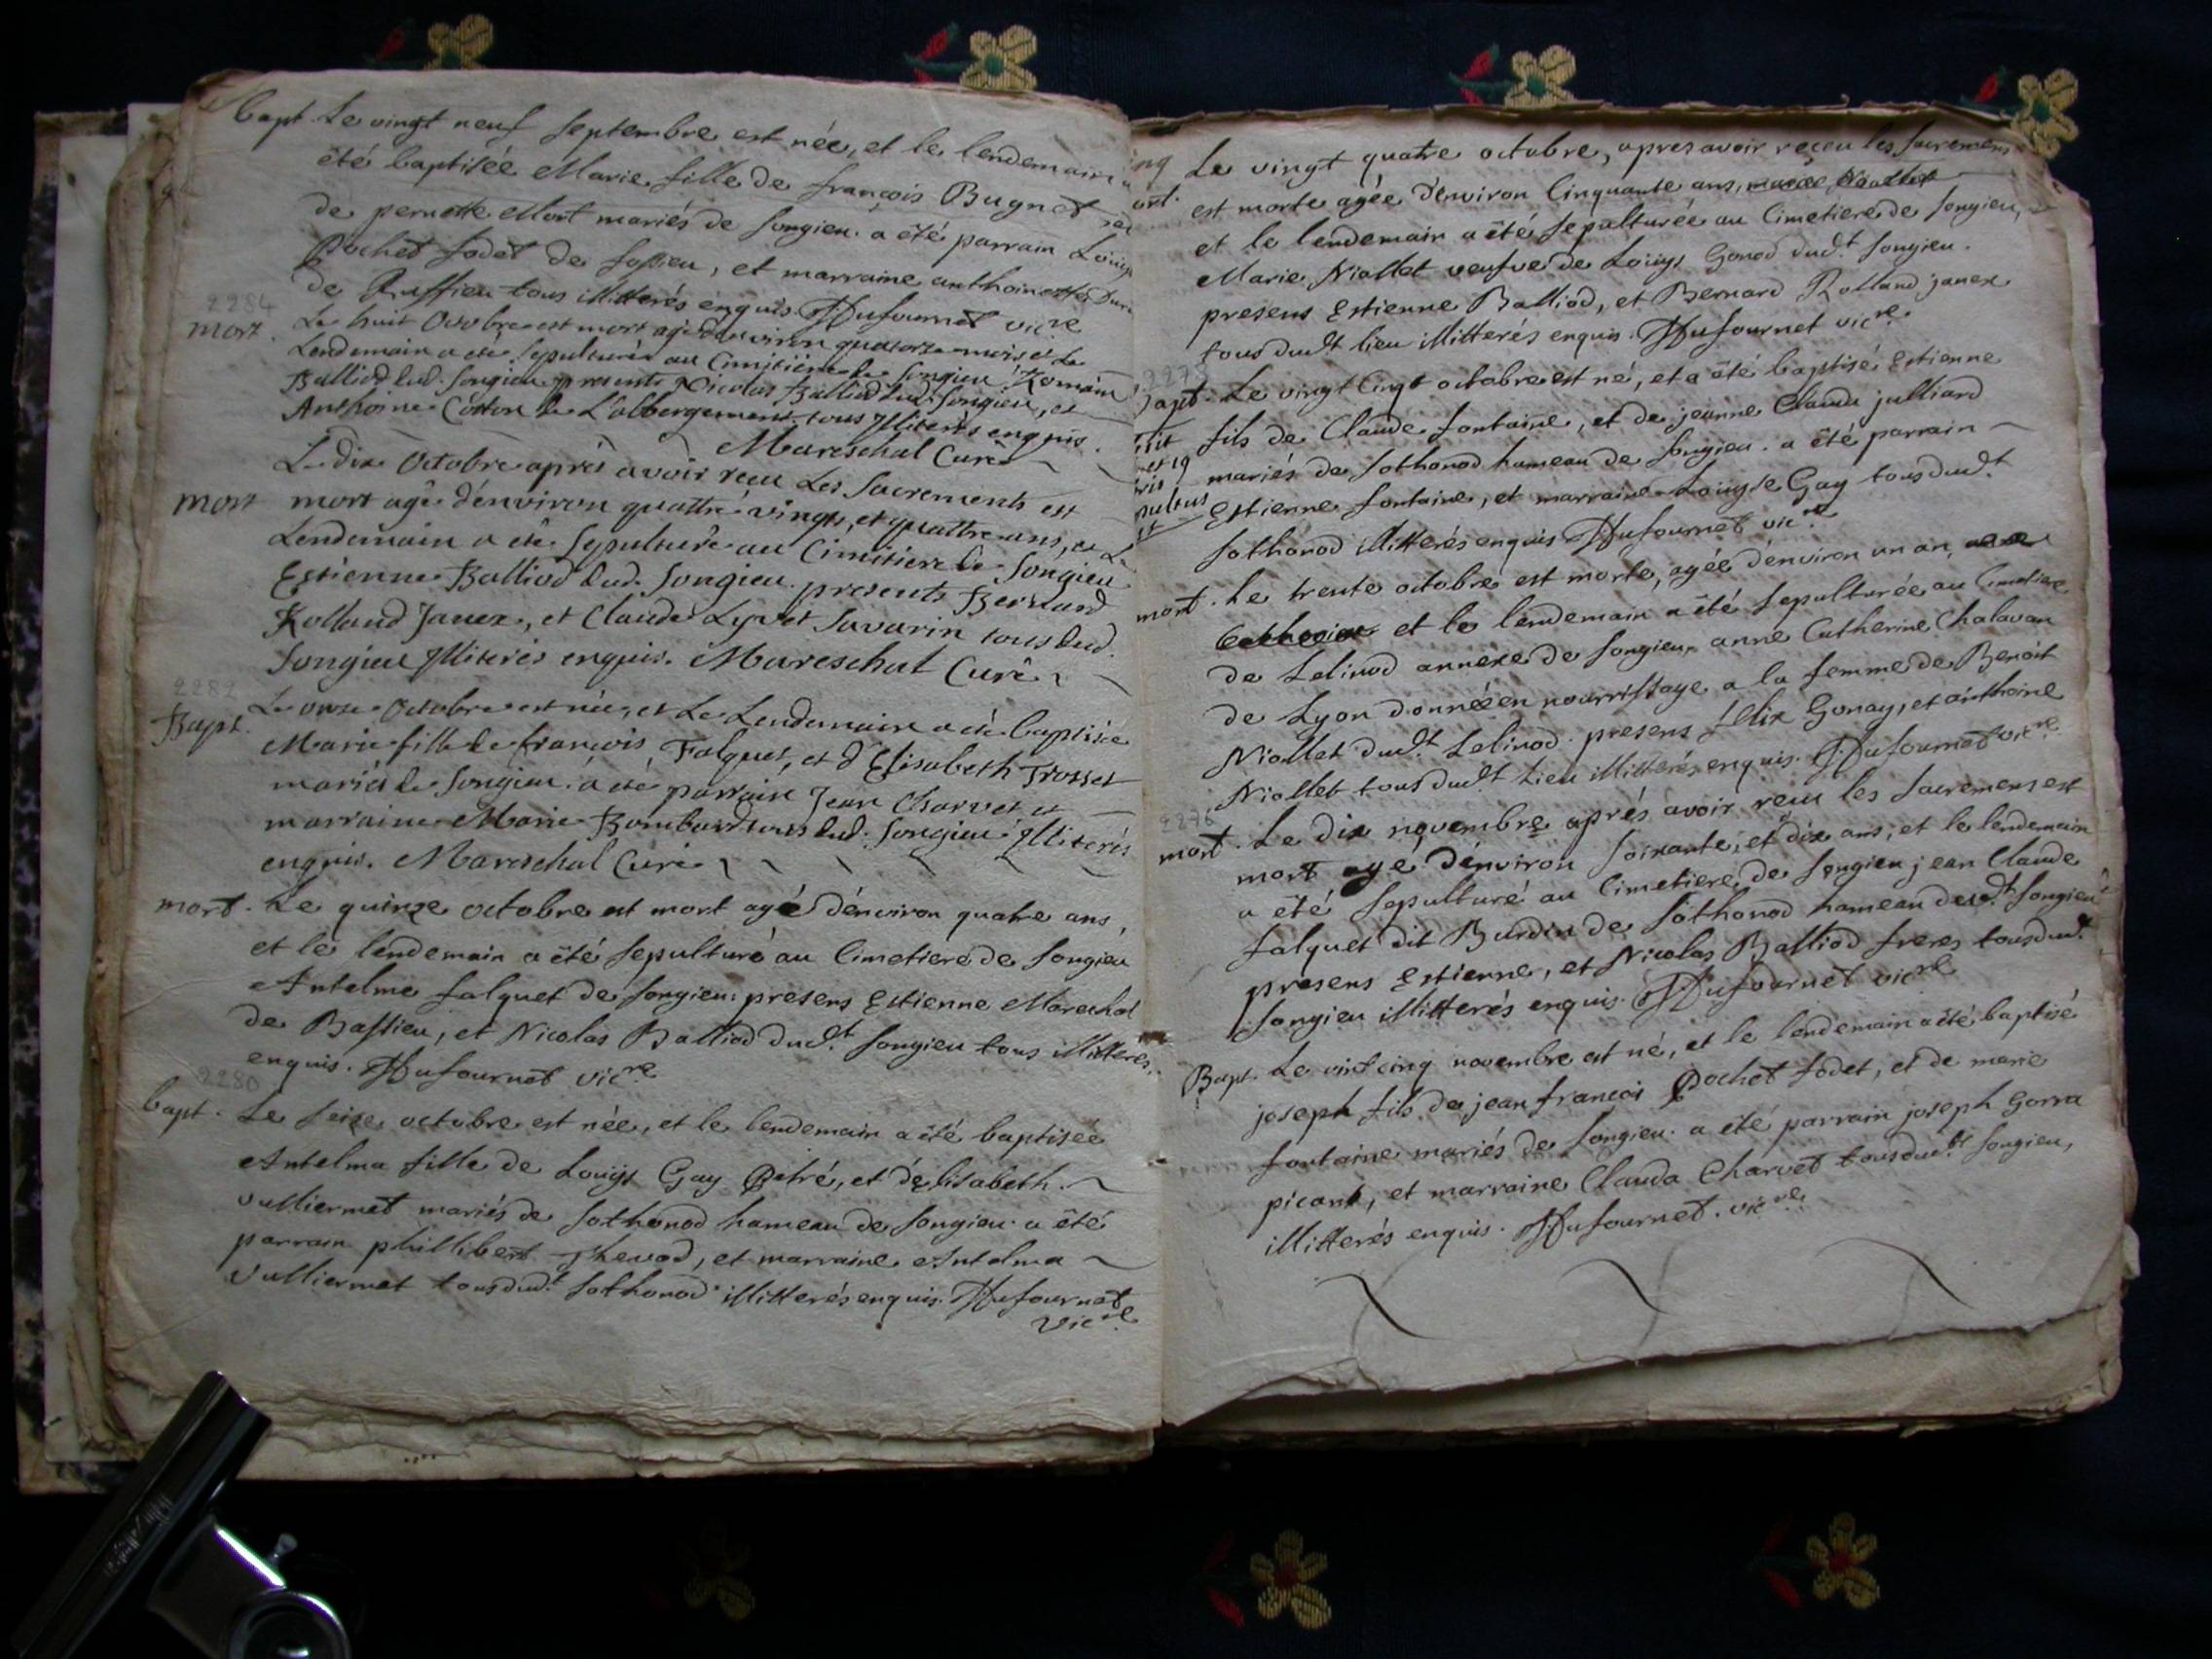 bapt. Le vingt neuf septembre est née, et le lendemain a
été baptisée Marie fille de françois Bugnet et
de pernette Mort mariés de songieu. a été parrain Louys
Pochet fodet de fossieu, et marraine anthoinette
de Ruffieu tous illitterés enquis. Dufournet vic.re
2284
mort. Le huit Octobre est mort agé d'environ quatorze mois et Le
Lendemain a été sepulturé au Cimitiere de songieu Romain
Balliod dud. songieu presents Nicolas Balliod dud. songieu, et
Anthoine Cotton de L'abbergement tous Illiterés enquis.
Mareschal Curé
mort Le dix Octobre aprés avoir reçu Les Sacrements est
mort agé d'environ quattre vingts, et quattre ans, et Le
Lendemain a été sepulturé au Cimitiere de Songieu
Estienne Balliod dud. Songieu. presents Bernard
Rolland Janex, et Claude Lyvet Savarin tous dud.
Songieu Illiterés enquis. Mareschal Curé
2282
Bapt. Le onze Octobre est née, et Le Lendemain a été baptisée
Marie fille de françois Falquet, et d'Elisabeth Trosset
mariés de Songieu. a été parrain Jean Charvet et
marraine Marie Bombard tous dud. Songieu Illiterés
enquis. Mareschal Curé
mort. Le quinze octobre est mort agé d'environ quatre ans,
et le lendemain a été sepulturé au Cimetiere de songieu
Antelme falquet de songieu: presens Estienne Marechal
de Bassieu, et Nicolas Balliod dud.t songieu tous illitterés
enquis. Dufournet vic.re
2280
bapt. Le seize octobre est née, et le lendemain a été baptisée
Antelma fille de Louys Gay Pitré, et d'élisabeth
vulliermet mariés de sothonod hameau de songieu. a été
parrain phillibert Thevod, et marraine Antelma
vulliermet tous dud.t sothonod illitterés enquis. Dufournet
vic.re
Le vingt quatre octobre, apres avoir reçeu les sacremens
est morte agée d'environ Cinquante ans,
et le lendemain a été sepulturée au Cimetiere de songieu,
Marie Niollet veufve de Louys Gonod dud.t songieu.
presens Estienne Balliod, et Bernard Rolland janex
tous dud.t lieu illitterés enquis. Dufournet vic.re
bapt. Le vingt Cinq octobre est né, et a été baptisé Estienne
fils de Claude fontaine, et de jeanne Clauda julliard
mariés de sothonod hameau de songieu. a été parrain
Estienne fontaine, et marraine Louyse Gay tous dud.t
sothonod illitterés enquis Dufournet vic.re
mort. Le trente octobre est morte, agée d'environ un an,
et le lendemain a été sepulturée au Cimetiere
de Lelinod annexe de songieu, anne Catherine Chalavan
de Lyon donnée en nourrissage a la femme de Benoit
Niollet dud.t Lelinod. presens felix Gonay, et anthoine
Niollet tous dud.t lieu illitterés enquis. Dufournet vic.re
2276
mort. Le dix novembre aprés avoir reçu les sacremens est
mort agé d'environ soixante, et dix ans, et le lendemain
a été sepulturé au Cimetiere de songieu jean Claude
falquet dit Burdin de sothonod hameau dud.t songieu
presens Estienne, et Nicolas Balliod freres tous dud.t
songieu illitterés enquis. Dufournet vic.re
Bapt. Le vint cinq novembre est né, et le lendemain a été baptisé
joseph fils de jean françois Pochet fodet, et de marie
fontaine mariés de songieu. a été parrain joseph Gorra
picant, et marraine Clauda Charvet tous dud.t songieu,
illitterés enquis. Dufournet. vic.re